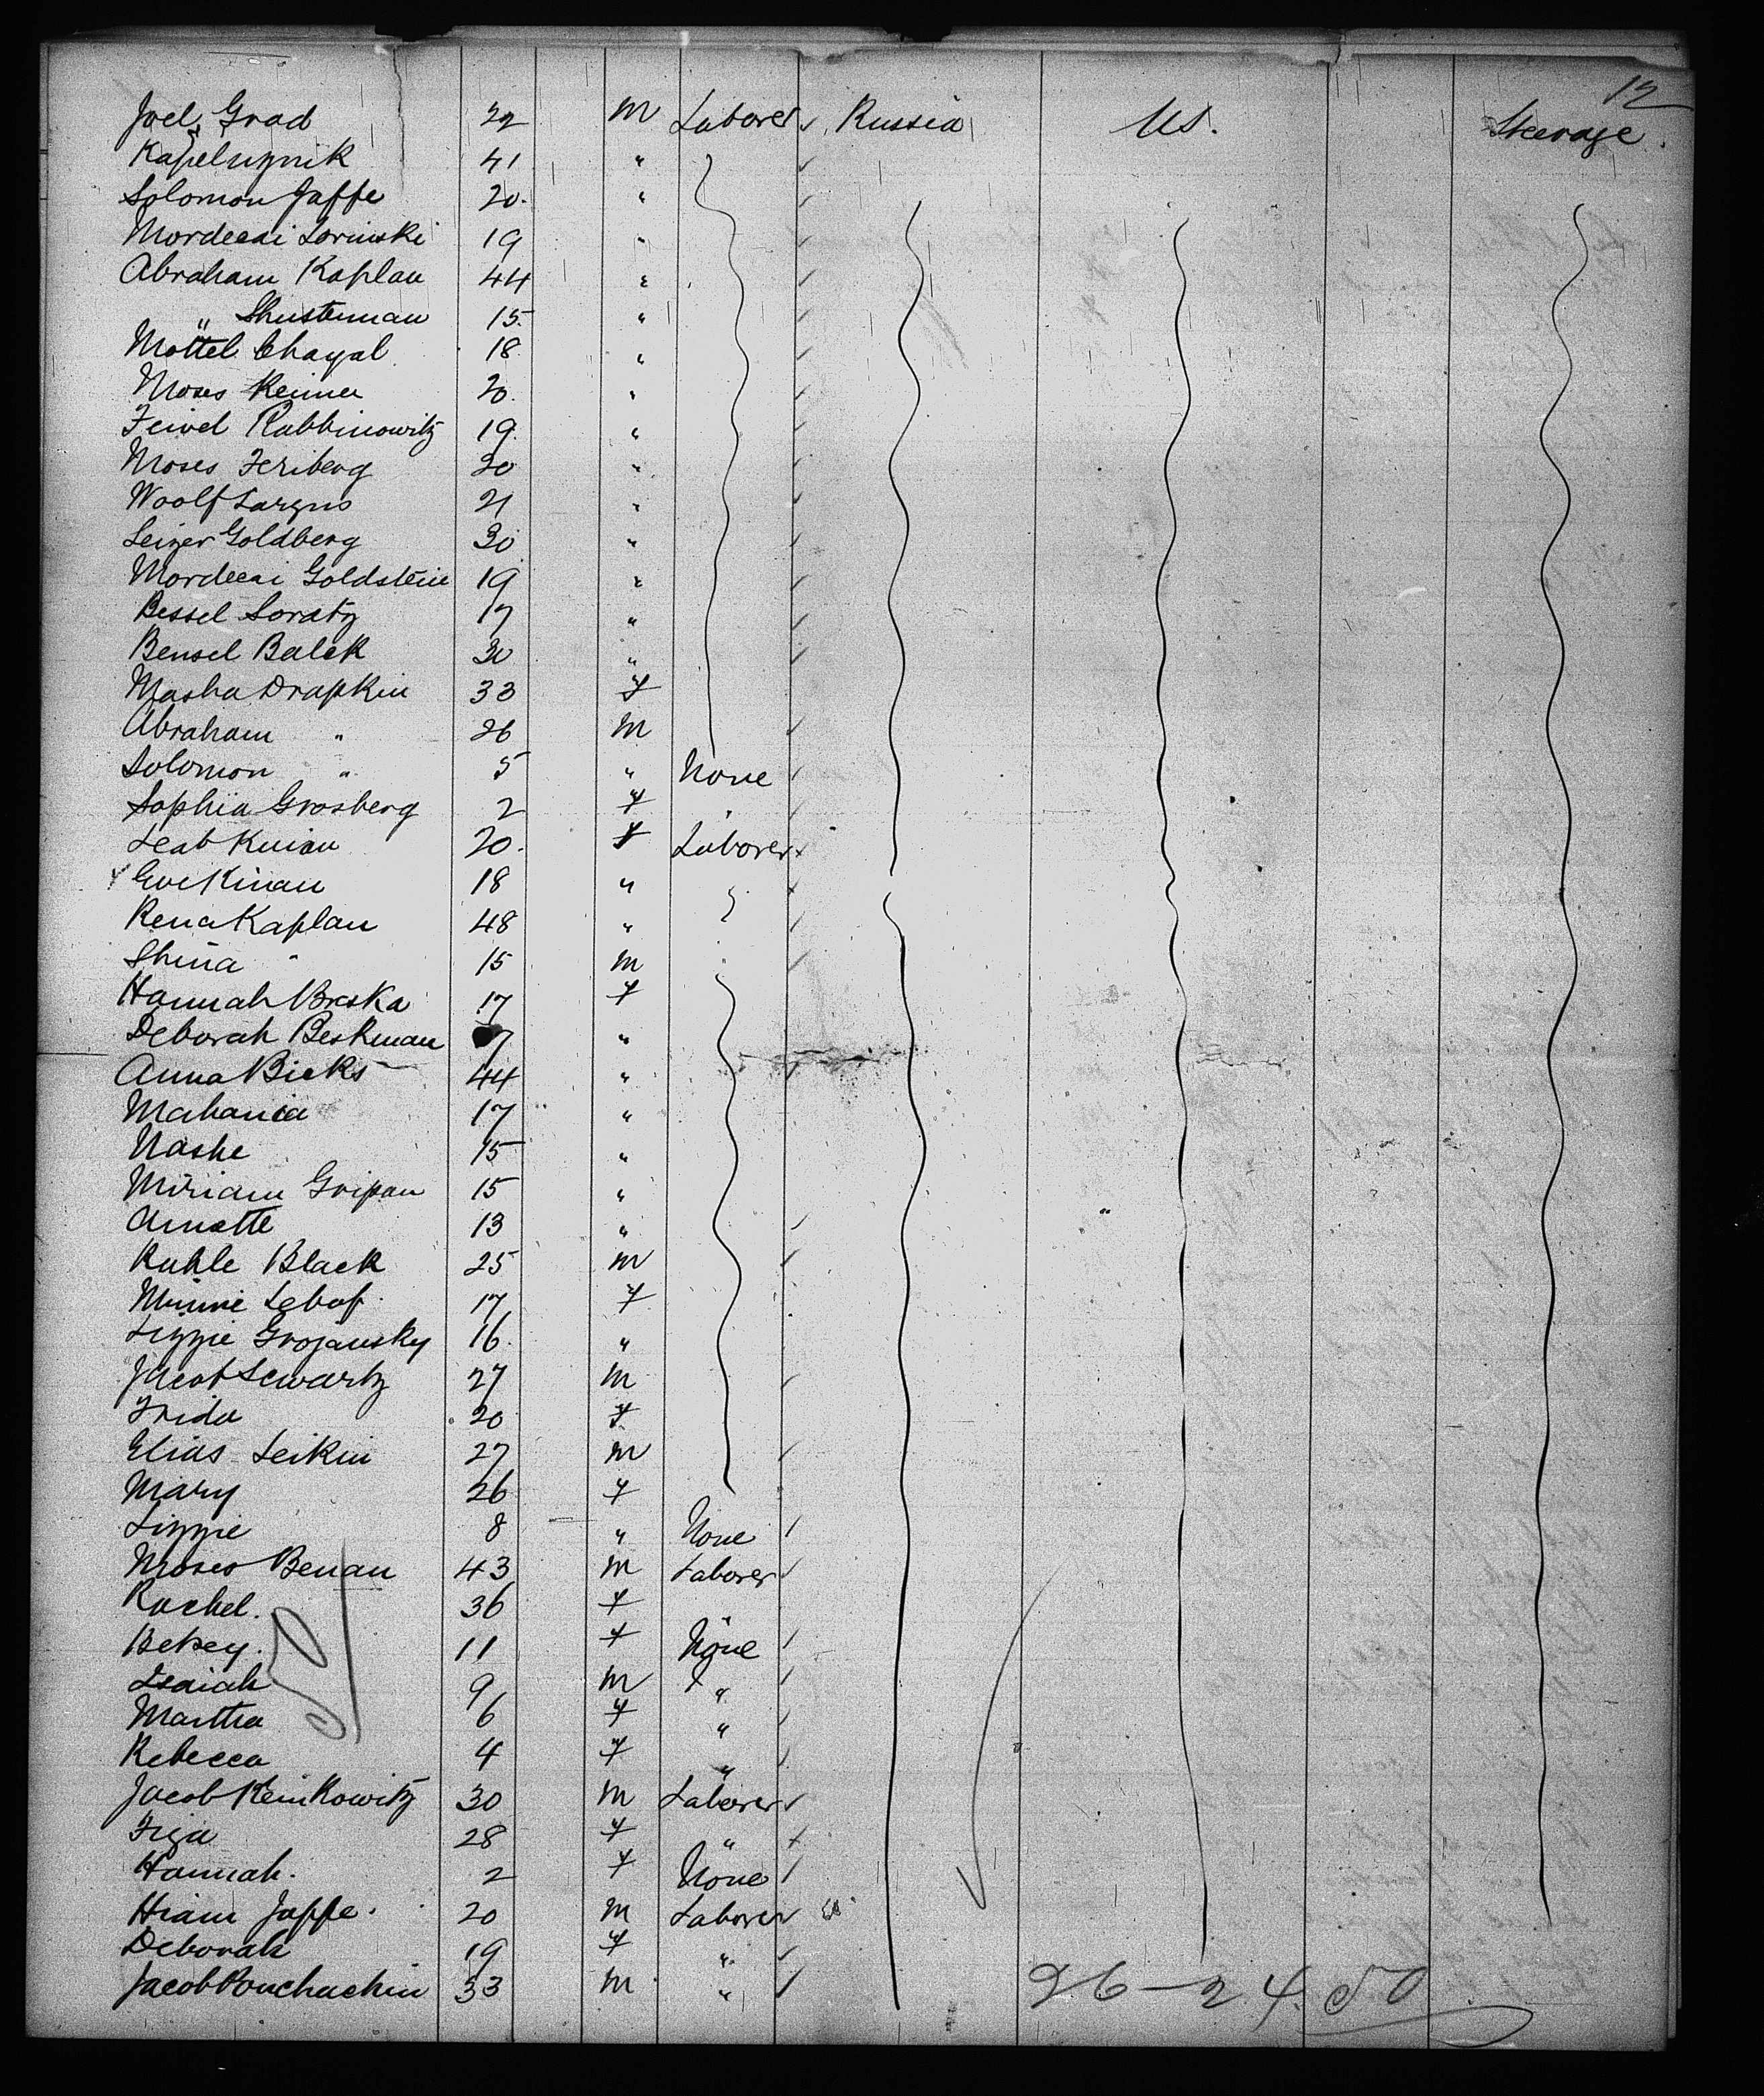 12
Joel Grad 22 M Laborer Russia U.S. Steerage
Kapeluznik 41 "
Solomon Jaffe 20. "
Mordecai Lorinski 19 "
Abraham Kaplan 44 "
" Shusterman 15. "
Mottel Chayal 18 "
Moses Reimer 20. "
Feivel Rabbinowitz 19. "
Moses Feriberg 30 "
Woolf Largus 21 "
Leizer Goldberg 30 "
Mordecai Goldstein 19 "
Bessel Soratz 17 "
Bensel Balek 30 "
Masha Drapkin 33 f
Abraham " 26 M
Solomon " 5 " None
Sophia Grosberg 2 f "
Leab 20. f Laborer
Eve Kinan 18 "
Rena Kaplan 48 "
Shina " 15 M
Hannah Breska 17 f
Deborah Beskman 7 "
Anna Bicks 44 "
Mahania 17 "
Nashe 15 "
Miriam Gripan 15 "
Annette 13 "
Kuhle Black 25 M
Minnie Lebof 17 f
Lizzie Grojansky 16. "
Jacob Swartz 27 M
Frida 20 f
Elias Leikin 27 M
Mary 26 f
Lizzie 8 " None
Moses Benan 43 M Laborer
Rachel. 36 f "
Betsey. 11 f None
Isaiah 9 M "
Martha 6 f "
Rebecca 4 f "
Jacob Reinkowitz 30 M Laborer
Figa 28 f "
Hannah. 2 f None
Hiam Jaffe. 20 M Laborer
Deborah 19 f "
Jacob Bouchachin 33 M "
26-24. 50